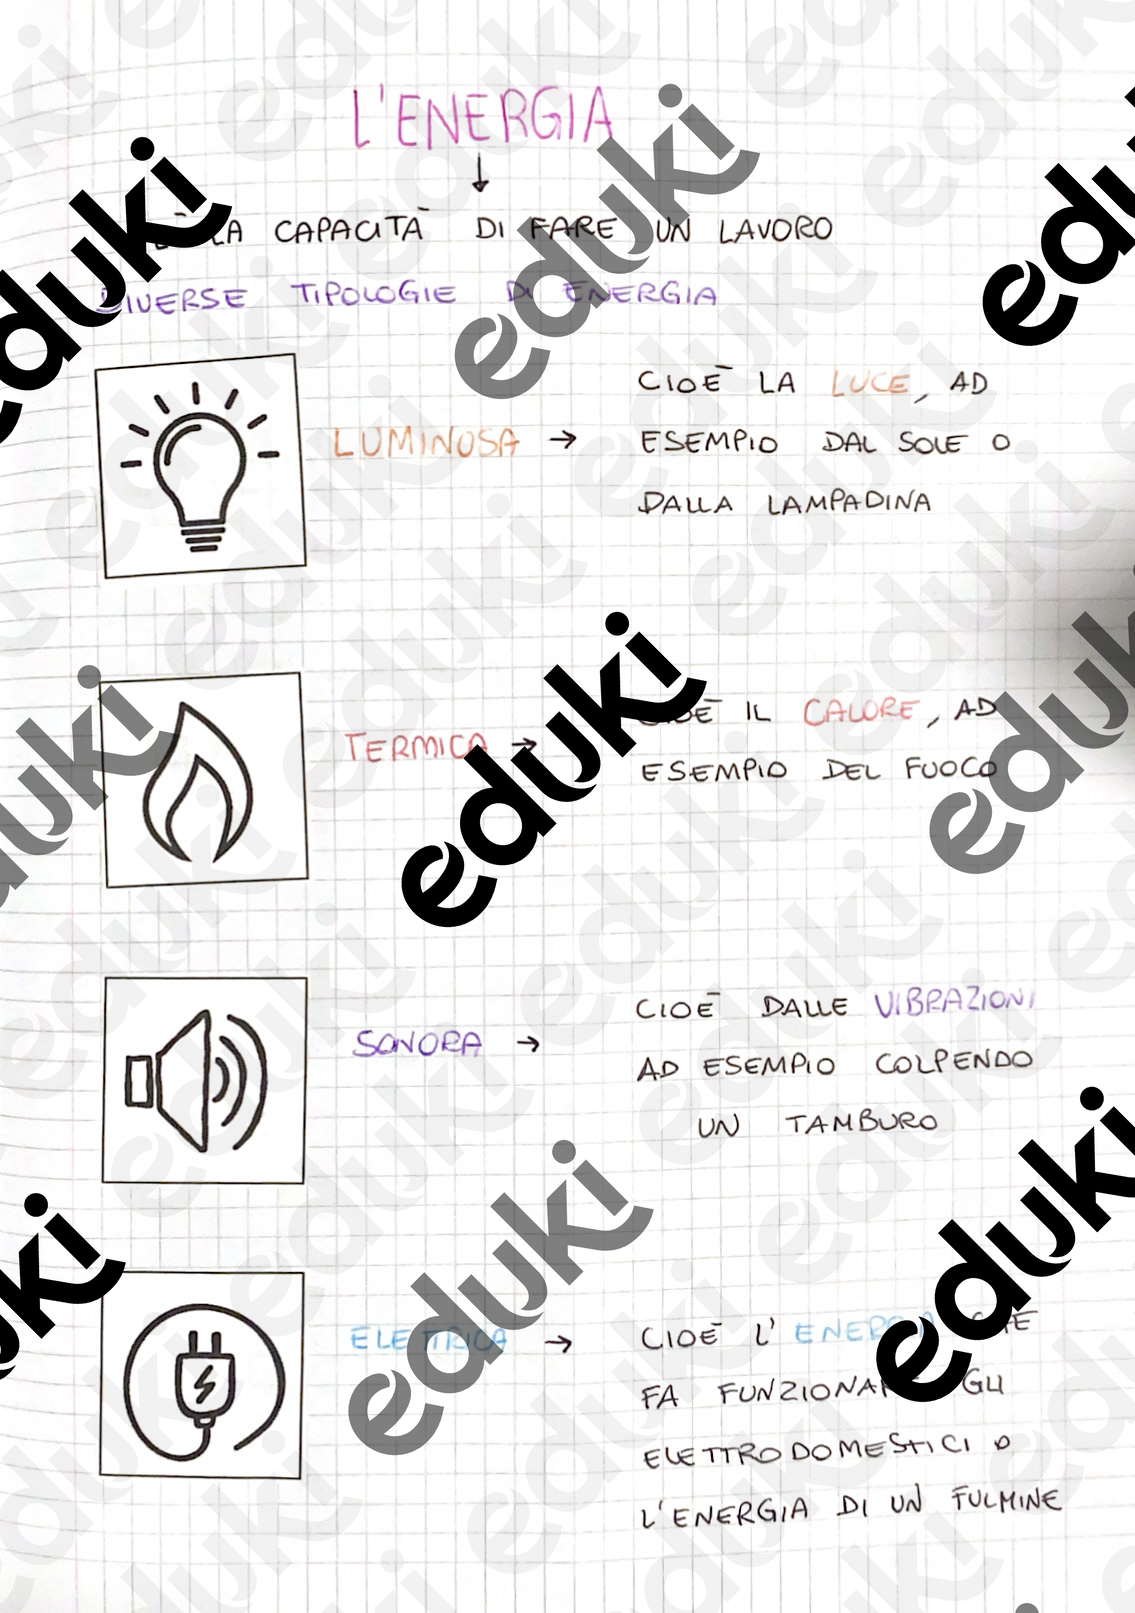 L'ENERGIA
È LA CAPACITÀ DI FARE UN LAVORO
DIVERSE TIPOLOGIE DI ENERGIA
LUMINOSA →
CIOÈ LA LUCE, AD
ESEMPIO DAL SOLE O
DALLA LAMPADINA
TERMICA →
CIOÈ IL CALORE, AD
ESEMPIO DEL FUOCO
SONORA →
CIOÈ DALLE VIBRAZIONI
AD ESEMPIO COLPENDO
UN TAMBURO
ELETTRICA →
CIOÈ L'ENERGIA CHE
FA FUNZIONARE GLI
ELETTRODOMESTICI O
L'ENERGIA DI UN FULMINE
eduki
eduki
eduki
eduki
eduki
eduki
eduki
eduki
eduki